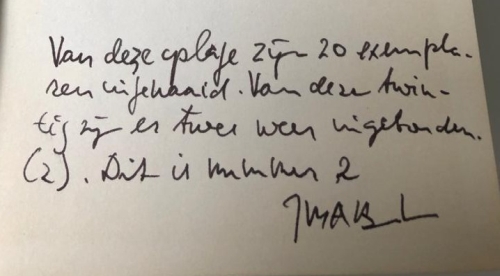 Van deze oplage zijn 20 exempla-
ren ingenaaid. Van deze twin-
tig zijn er twee weer ingebonden.
(2). Dit is nummer 2